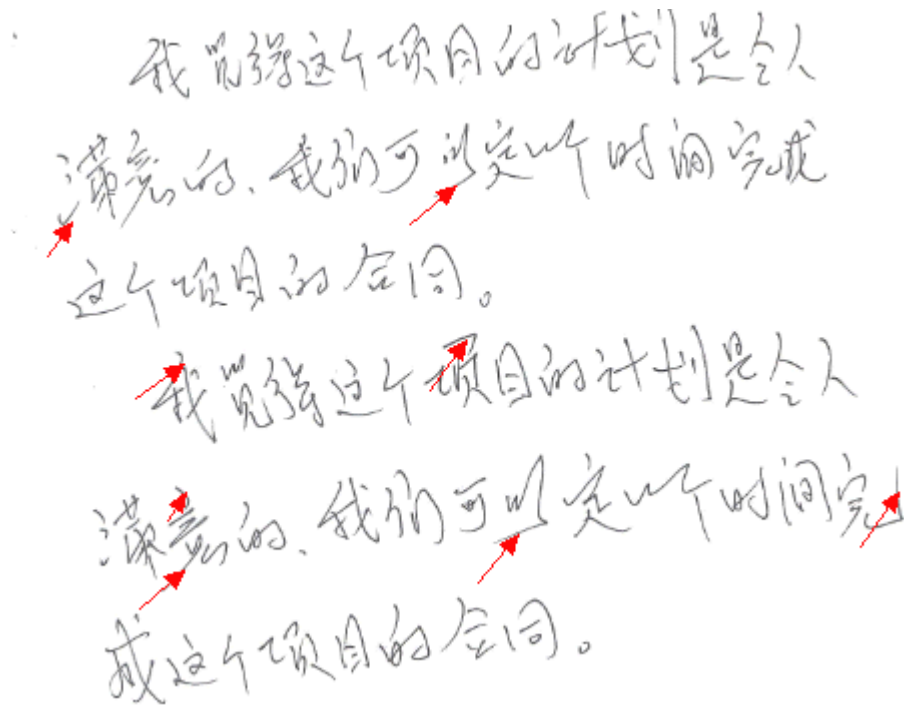 我觉得这个项目的计划是令人
满意的、我们可以定个时间完成
这个项目的合同。
我觉得这个项目的计划是令人
满意的、我们可以定个时间完
成这个项目的合同。